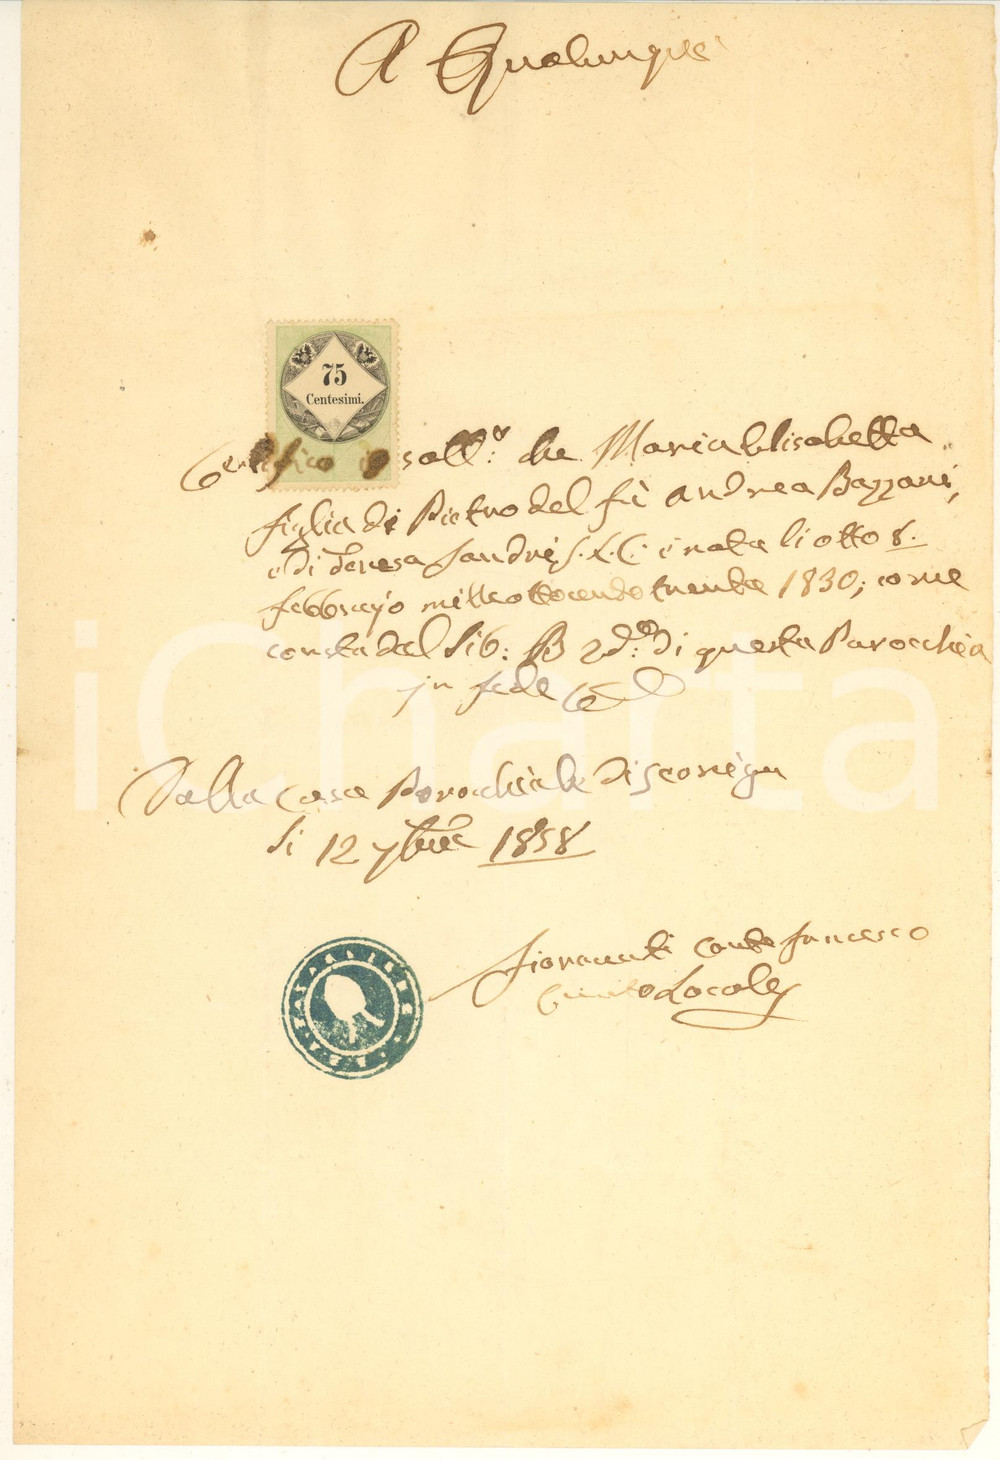 A Qualunque
75
Centesimi.
Certifico io sott.º che Maria Elisabetta
figlia di Pietro del fù Andrea Bazzani,
e di Teresa Sandri, S. L. C. è nata li otto 8.
febbrajo mille ottocento trenta 1830; come
consta dal Lib: B 2do: di questa Parocchia
in fede
Dalla Casa Parocchiale di
li 12 7bre 1858
Fioravanti Conte Francesco
Locale
iCharta